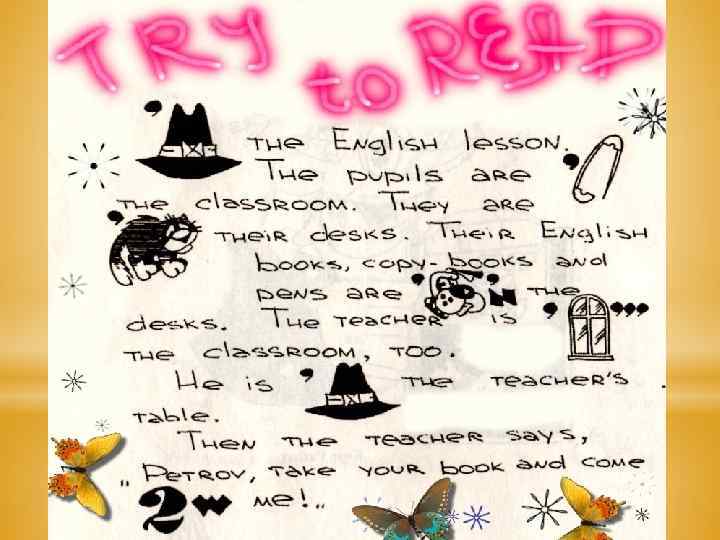 TRY to READ
, THE ENGLISH LESSON.
THE PUPILS ARE ,
, THE CLASSROOM. THEY ARE
THEIR DESKS. THEIR ENGLISH
BOOKS, COPY-BOOKS AND
PENS ARE , ,, THE
DESKS. THE TEACHER IS , ,,,
THE CLASSROOM, TOO.
HE IS , THE TEACHER'S
TABLE.
THEN THE TEACHER SAYS,
„PETROV, TAKE YOUR BOOK AND COME
2 ME!„